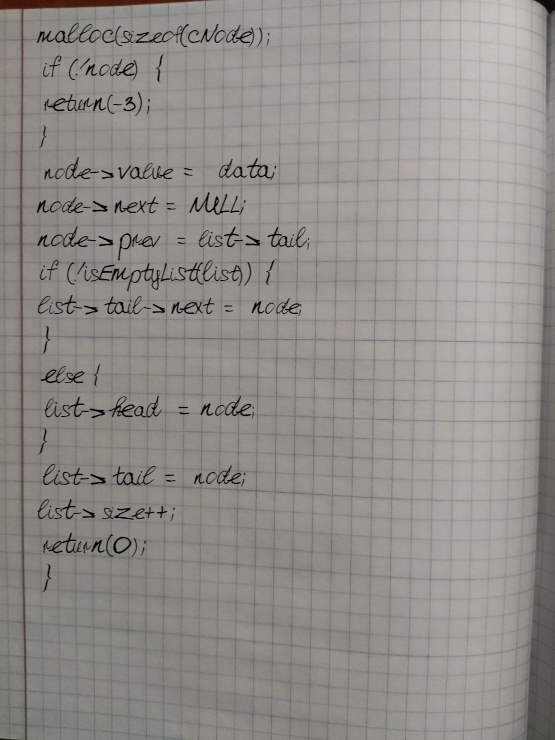 malloc(sizeof(cNode));
if (!node) {
return(-3);
}
node->value = data;
node->next = NULL;
node->prev = list->tail;
if (!isEmptyList(list)) {
list->tail->next = node;
}
else {
list->head = node;
}
list->tail = node;
list->size++;
return(0);
}